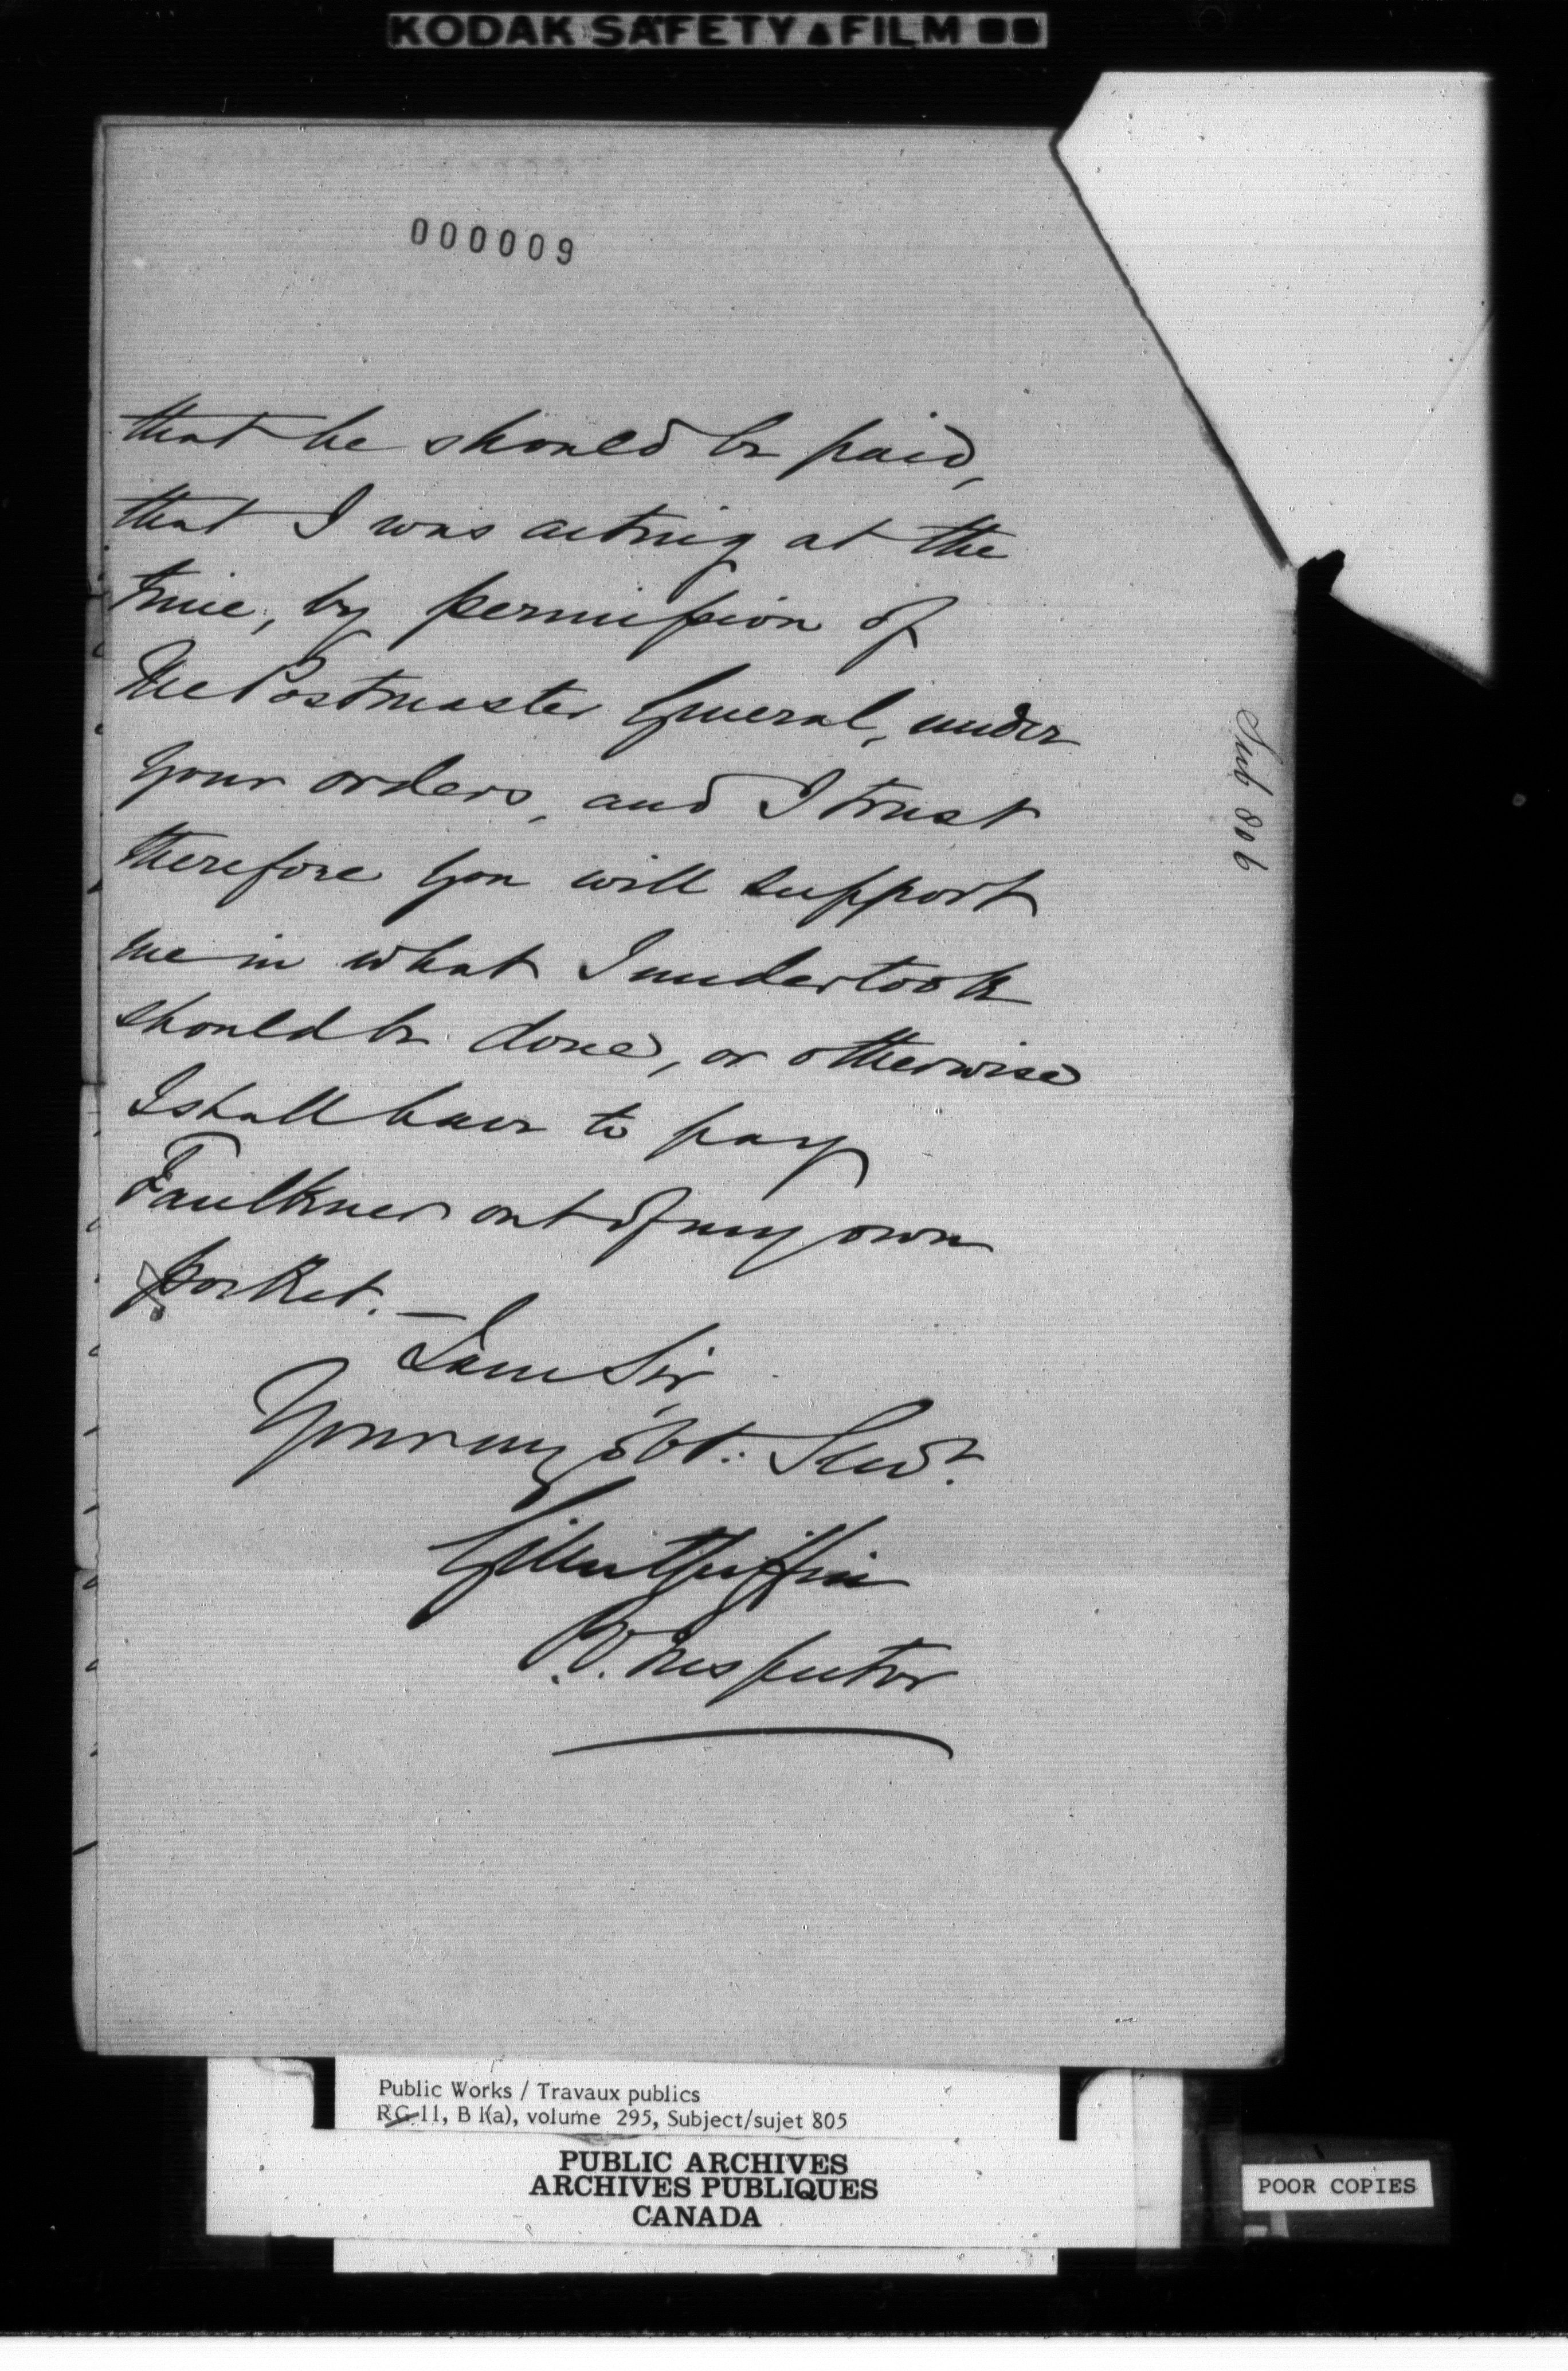 KODAK SAFETY FILM
000009
that he should be paid,
that I was acting at the
time, by permission of
the Postmaster General, under
your orders, and I trust
therefore you will support
me in what I undertook
should be done, or otherwise
I shall have to pay
Faulkner out of my own
pocket. —
I am Sir,
Your my obt: Servt.
Griffin
P.O. Inspector
Sub 806
Public Works / Travaux publics
RG 11, B 1(a), volume 295, Subject/sujet 805
PUBLIC ARCHIVES
ARCHIVES PUBLIQUES
CANADA
POOR COPIES